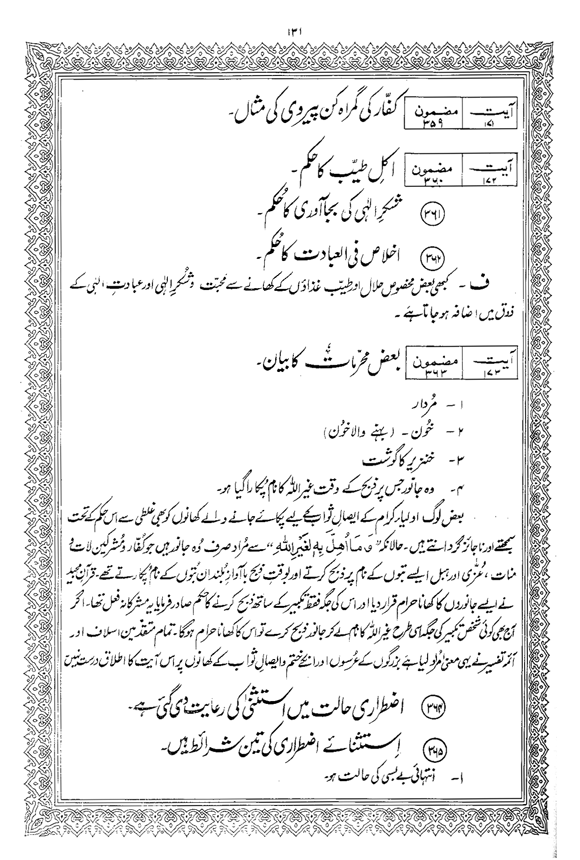 ۱۳۱
آیت ۱۷۱ مضمون ۳۵۹ کفّار کی گمراہ کن پیروی کی مثال۔
آیت ۱۷۲ مضمون ۳۶۰ اکلِ طیّب کا حکم۔
۳۶۱ شکرِ الٰہی کی بجاآوری کا حُکم۔
۳۶۲ اخلاص فی العبادت کا حُکم۔
ف ۔ کبھی بعض مخصوص حلال اور طیّب غذاؤں کے کھانے سے محبّت و شکرِ الٰہی اور عبادتِ الٰہی کے
ذوق میں اضافہ ہو جاتا ہے ۔
آیت ۱۷۳ مضمون ۳۶۳ بعض محرّمات کا بیان۔
۱ ۔ مُردار
۲ ۔ خُون ۔ (بہنے والا خُون)
۳ ۔ خنزیر کا گوشت
۴ ۔ وہ جانور جس پر ذبح کے وقت غیر اللہ کا نام پُکارا گیا ہو۔
بعض لوگ اولیاء کرام کے ایصالِ ثواب کے لیے پکائے جانے والے کھانوں کو بھی غلطی سے اس حکم کے تحت
سمجھتے اور ناجائز گردانتے ہیں۔ حالانکہ ”وَمَا اُھِلَّ بِهٖ لِغَيْرِ اللهِ“ سے مُراد صرف وُہ جانور ہیں جو کُفّار و مُشرکین لات و
منات ، عُزّیٰ اور ہبل ایسے بتوں کے نام پر ذبح کرتے اور بوقتِ ذبح بآوازِ بلند ان بُتوں کے نام پُکارتے تھے۔ قرآنِ مجید
نے ایسے جانوروں کا کھانا حرام قرار دیا اور اس کی جگہ فقط تکبیر کے ساتھ ذبح کرنے کا حکم صادر فرمایا یہ مشرکانہ فعل تھا۔ اگر
آج بھی کوئی شخص تکبیر کی جگہ اسی طرح غیر اللہ کا نام لے کر جانور ذبح کرے تو اس کا کھانا حرام ہوگا۔ تمام متقدمین اسلاف اور
آئمہ تفسیر نے یہی معنیٰ مُراد لیا ہے بزرگوں کے عُرسوں اور انکے ختم و ایصالِ ثواب کے کھانوں پر اس آیت کا اطلاق درست نہیں
۳۶۴ اضطراری حالت میں استثنیٰ کی رعایت دی گئی ہے۔
۳۶۵ اِستثنائے اضطراری کی تین شرائط ہیں۔
۱۔ انتہائی بے بسی کی حالت ہو۔